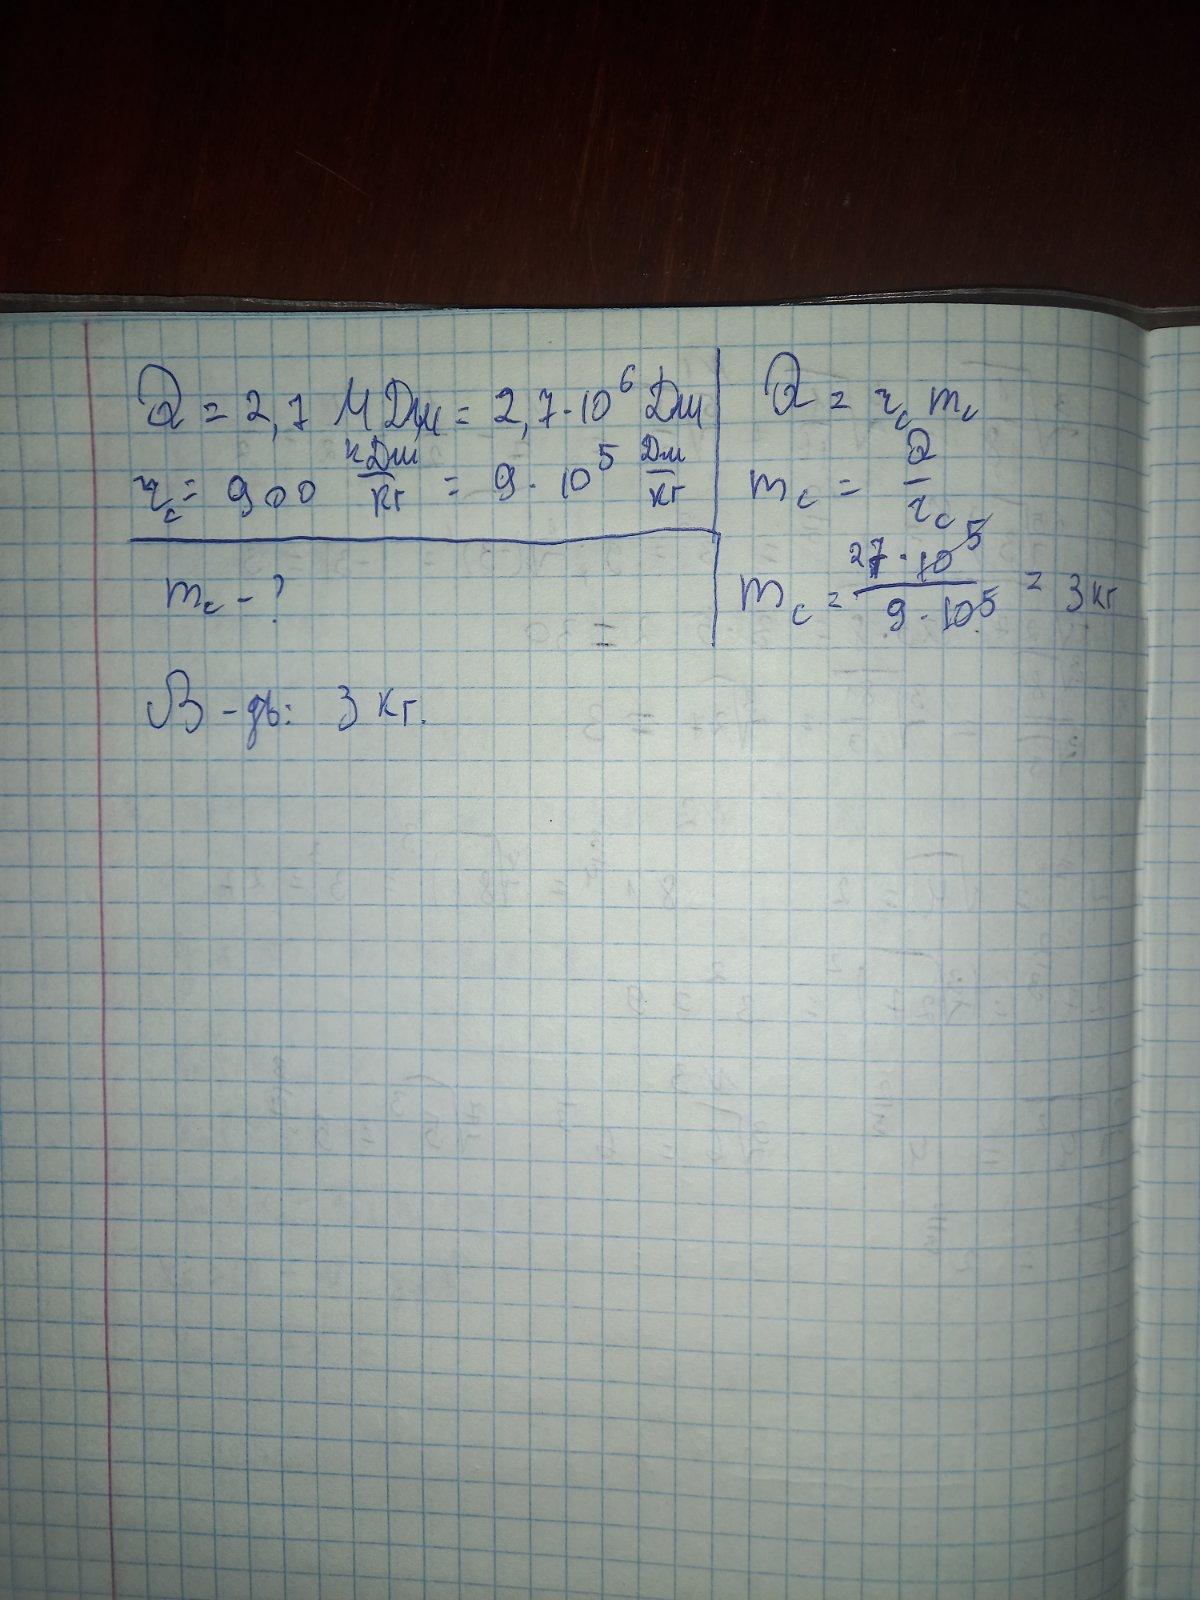 Q = 2,7 МДж = 2,7·10⁶ Дж
r_c = 900 кДж/кг = 9·10⁵ Дж/кг
m_c - ?
Q = r_c m_c
m_c = Q/r_c
m_c = 27·10⁵/9·10⁵ = 3 кг
В-дь: 3 кг.